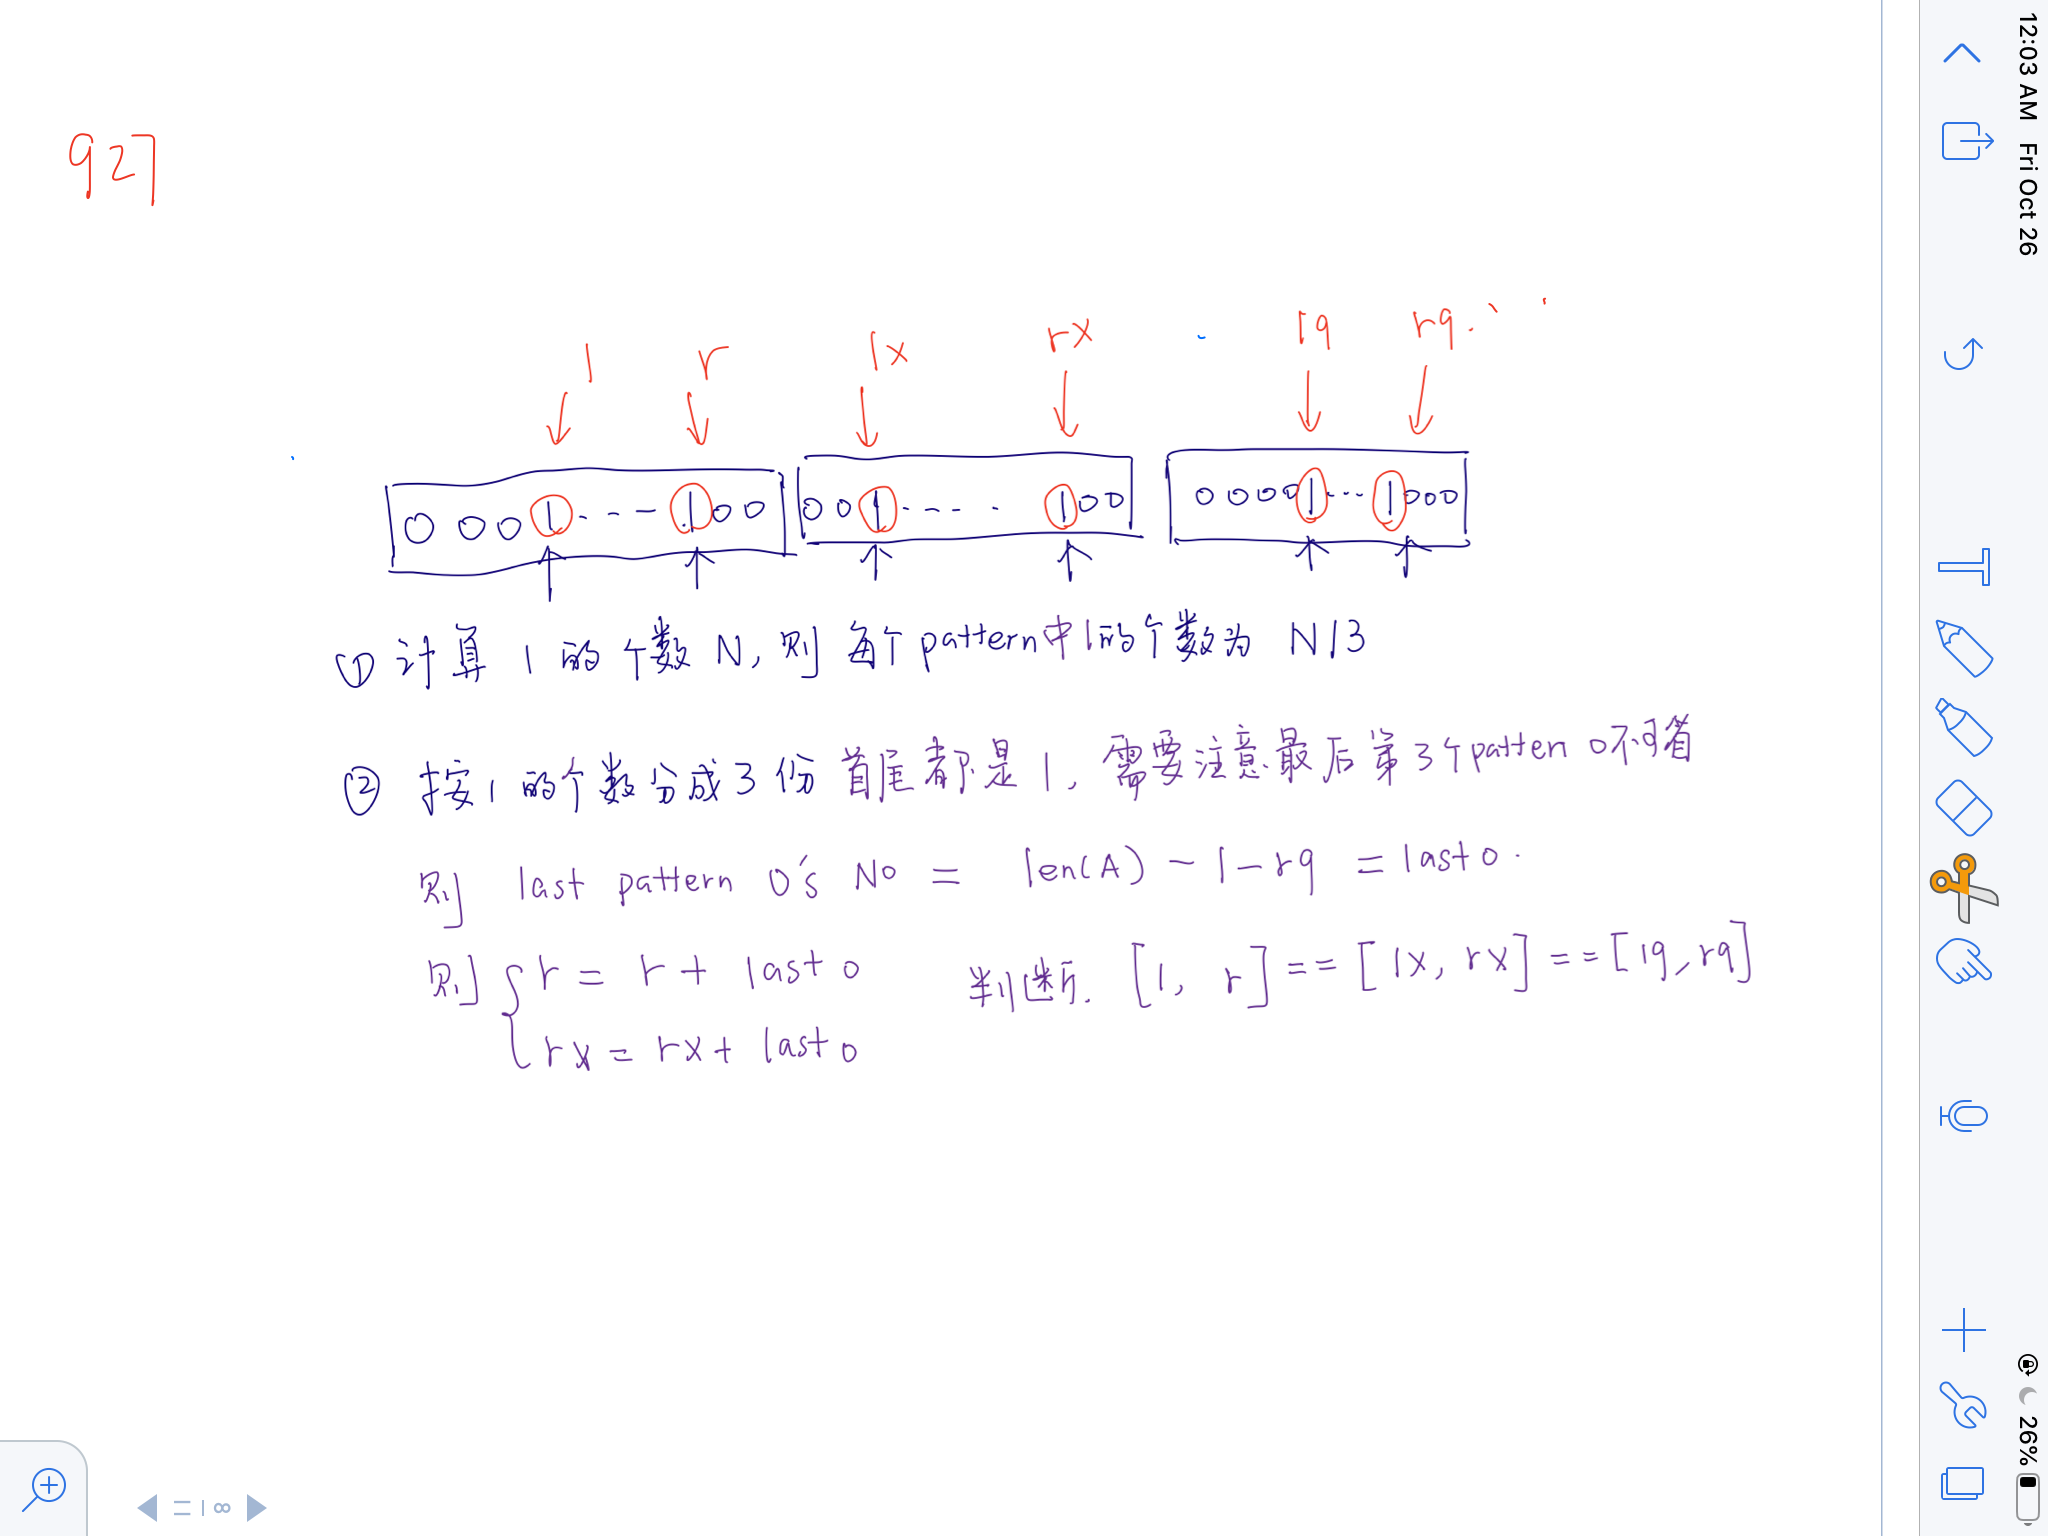 927
l r lx rx lq rq.
0 0 0 1 - - - 1 0 0 0 0 1 - - - - . 1 0 0 0 0 0 0 1 - - - 1 0 0 0
① 计算 1 的个数 N, 则 每个 pattern中1的个数为 N/3
② 按 1 的个数分成 3 份 首尾都是 1, 需要注意最后第 3 个 patten 0不可省
则 last pattern 0's No = len(A) - 1 - rq = last 0.
则 { r = r + last 0 判断. [l, r] == [lx, rx] == [lq, rq]
rx = rx + last 0
12:03 AM Fri Oct 26
26%